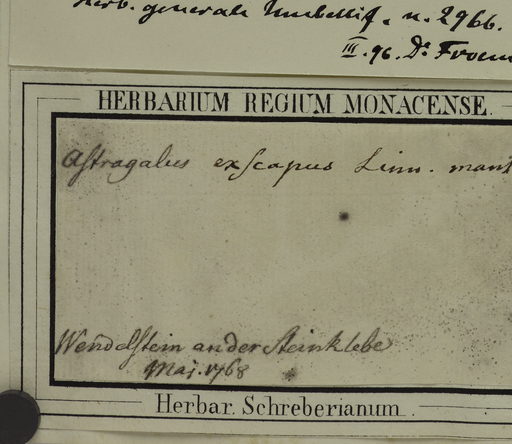 Herb. generale Umbellif. n. 2966.
III. 96. Dr.
HERBARIUM REGIUM MONACENSE.
Aſtragalus exſcapus Linn. mant
Wendelſtein an der Steinklebe
Maj. 1768
Herbar. Schreberianum.